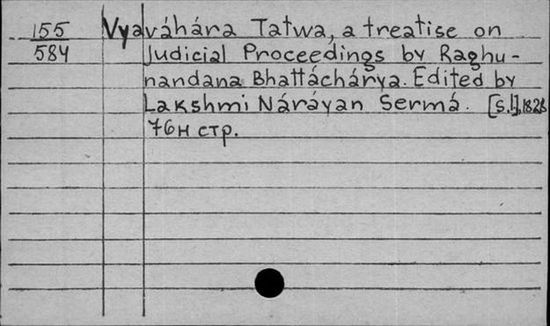 155 Vyaváhára Tatwa, a treatise on
584 Judicial Proceedings by Raghu-
nandana Bhattáchárya. Edited by
Lakshmi Náráyan Sermá. [S.l], 1828
76н стр.